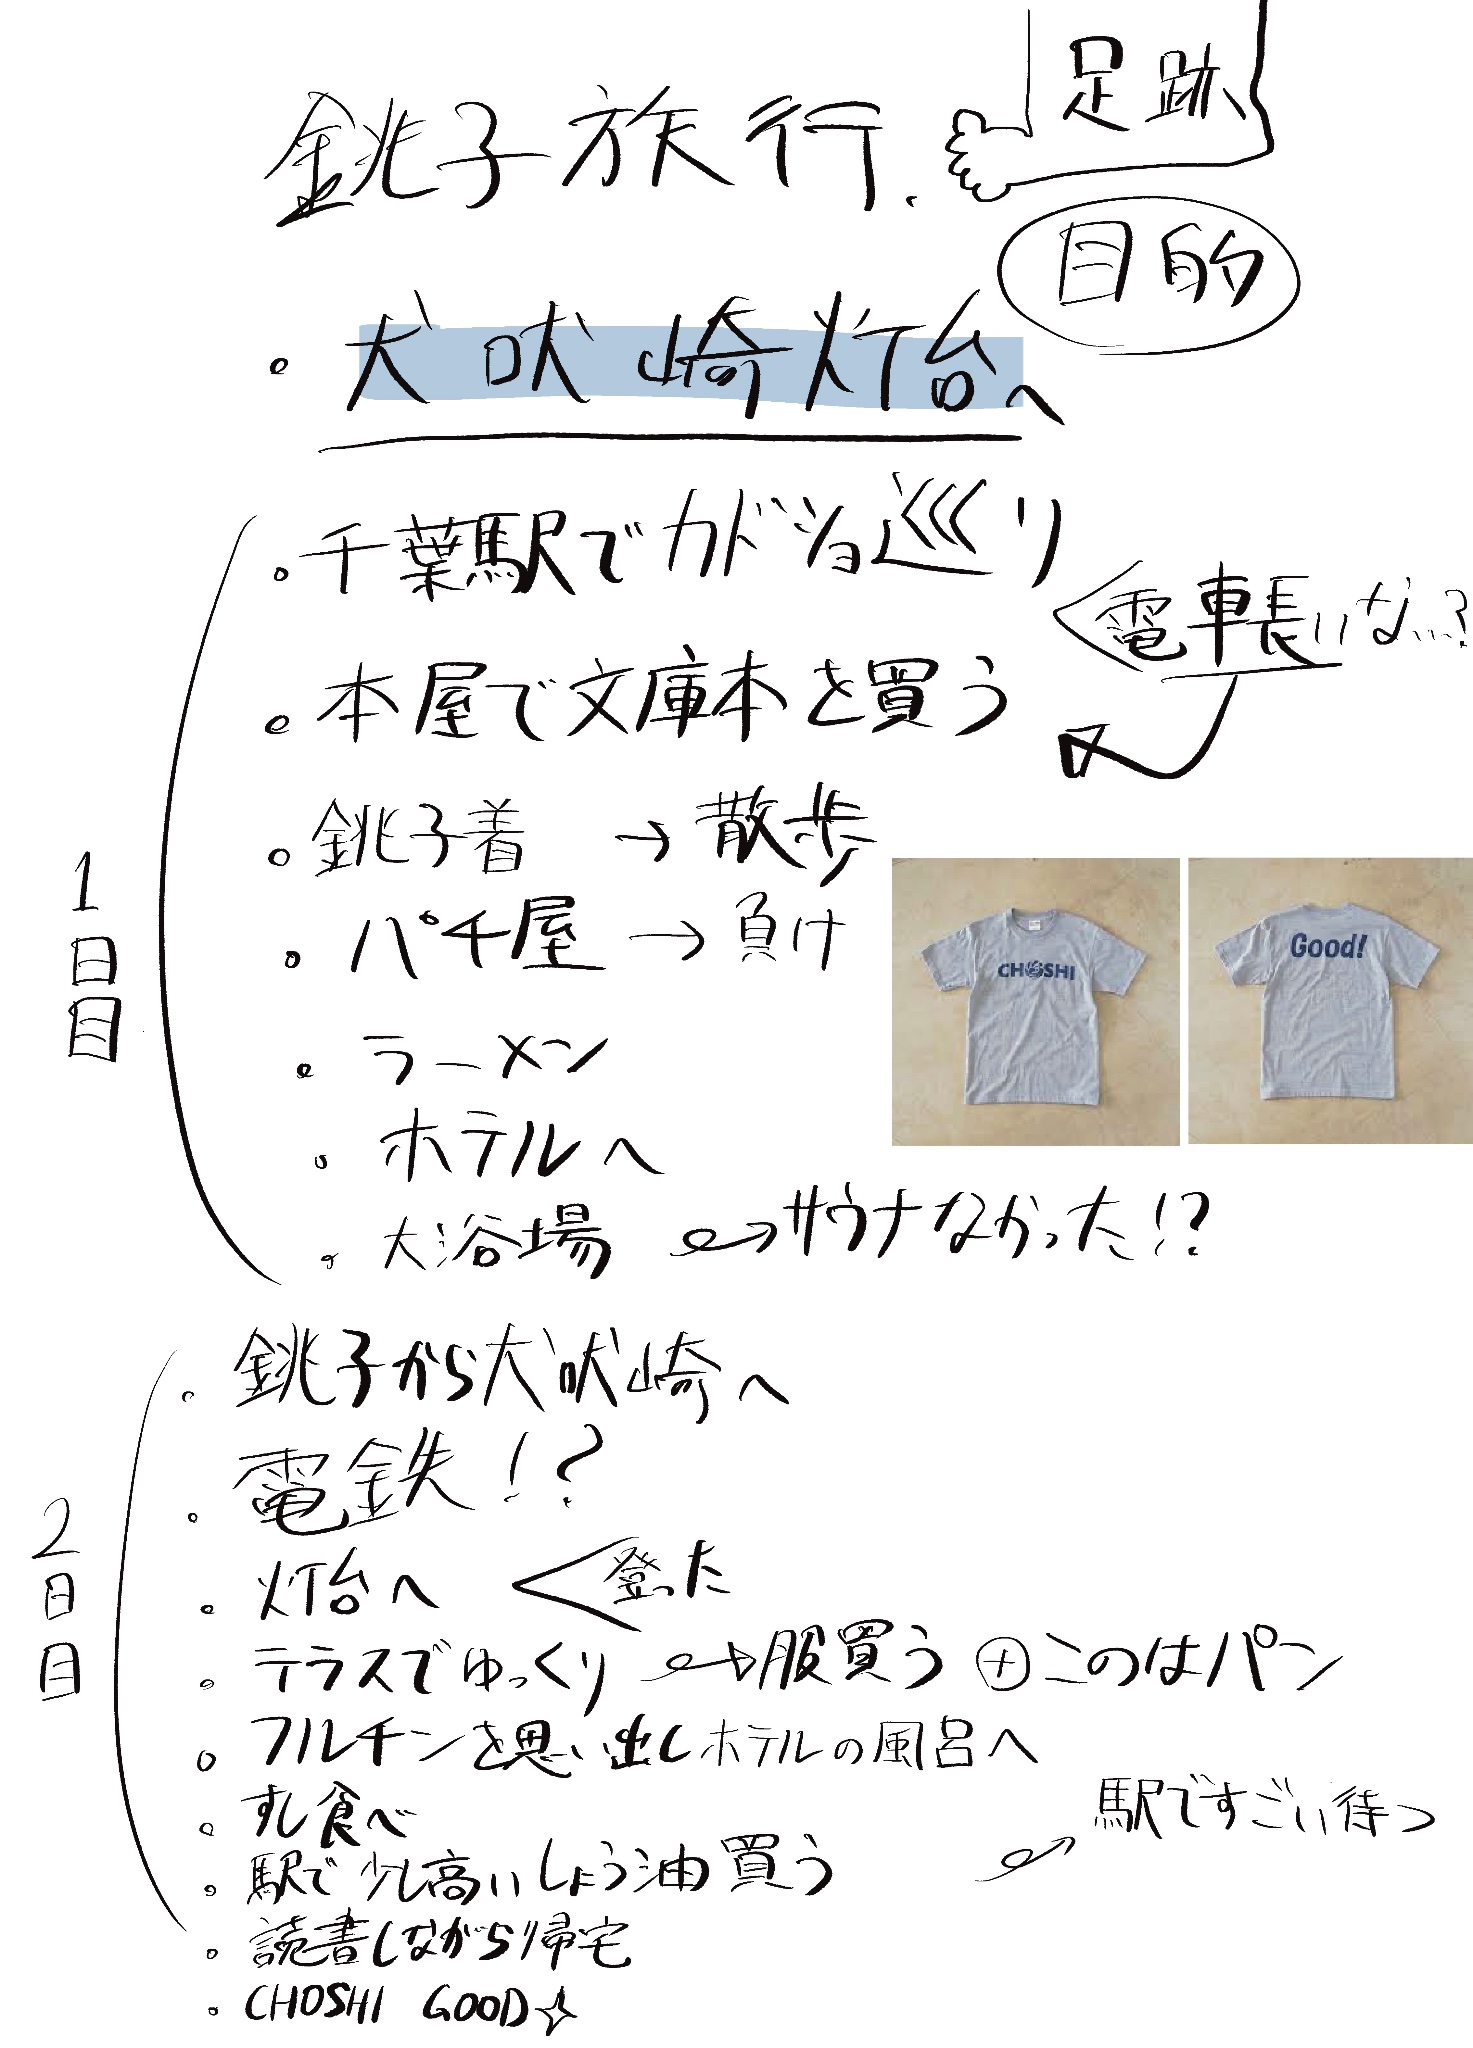 足跡
銚子旅行.
目的
・犬吠崎灯台へ
・千葉駅でカドショ巡り
電車長いな…?
・本屋で文庫本を買う
・銚子着 → 散歩
・パチ屋 → 負け
CHOSHI
Good!
・ラーメン
・ホテルへ
・大浴場 → サウナなかった!?
1日目
・銚子から犬吠崎へ
・電鉄!?
・灯台へ < 登った
・テラスでゆっくり → 服買う ⊕ このはパン
・フルチンを思い出しホテルの風呂へ
・すし食べ
駅ですごい待つ
・駅で少し高いしょう油買う →
・読書しながら帰宅
・CHOSHI GOOD✧
2日目